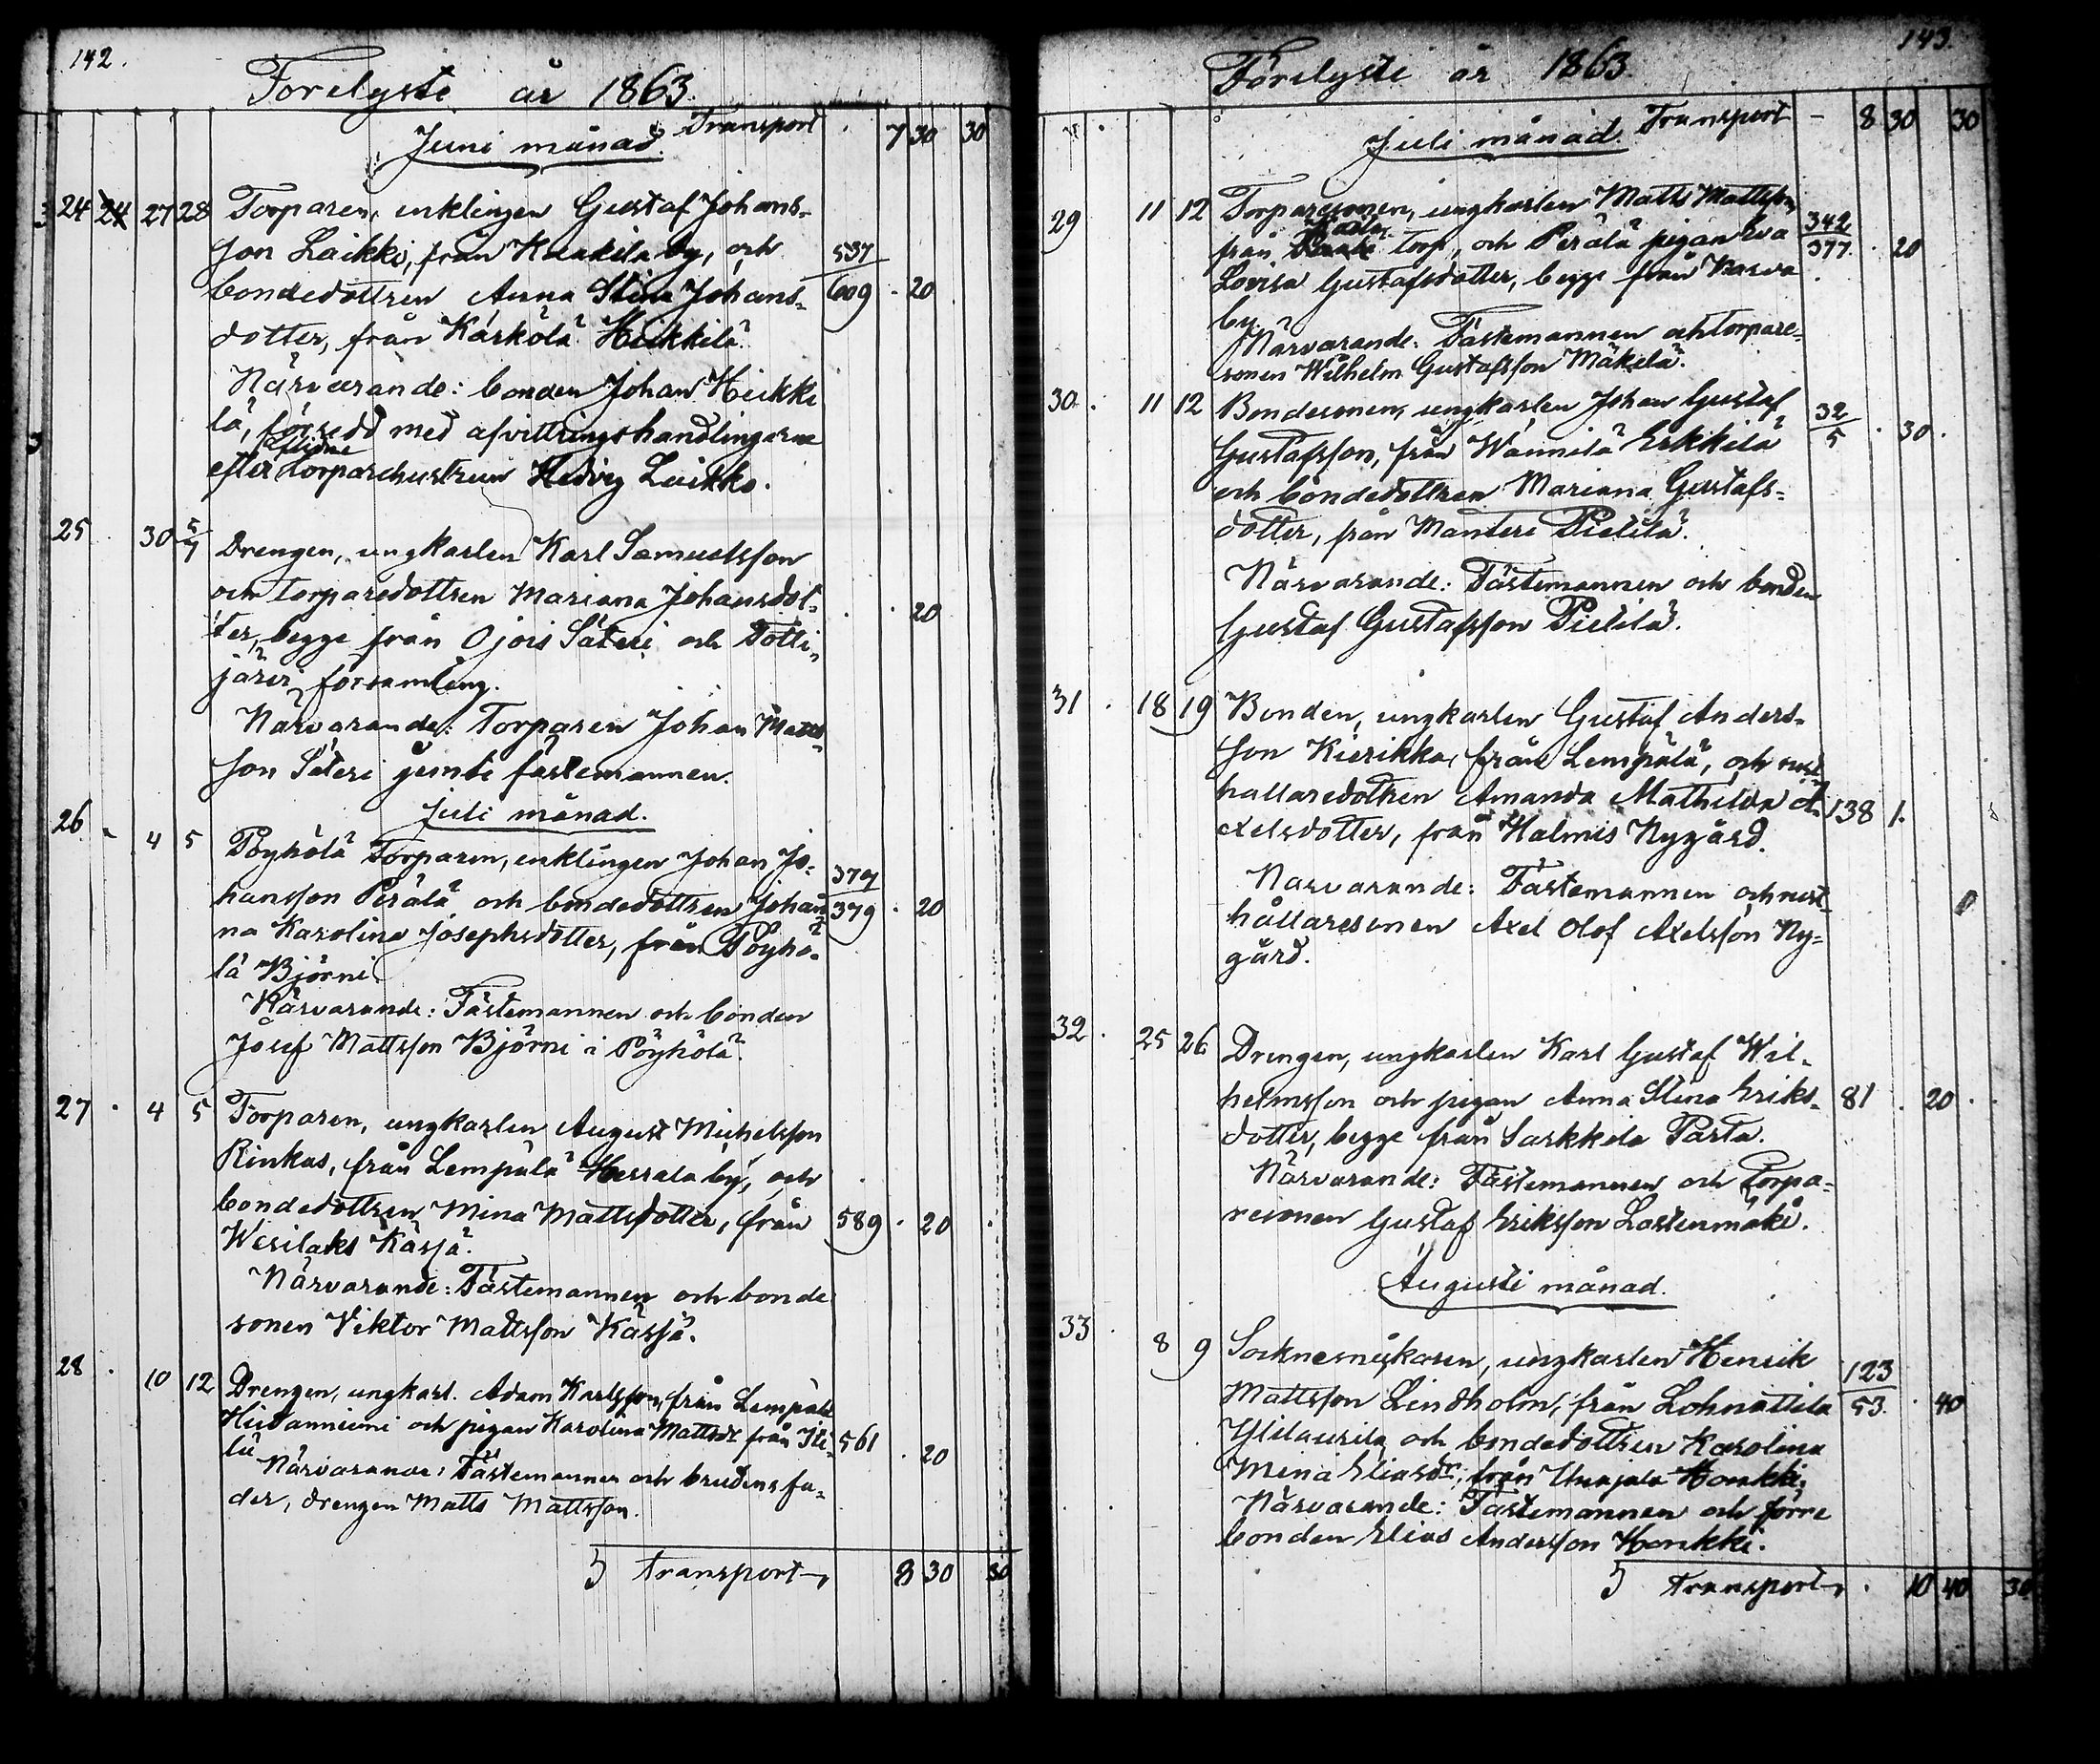 142.
Förelyste år 1863.
Juni månad. Transport 7 30 30
24 24 27 28 Torparen, enklingen Gustaf Johans-
son Laikko, från Kuakila by, och 537
bondedottren Anna Stina Johans- 609 . 20
dotter, från Kärkölä Heikkilä.
Närvarande: bonden Johan Heikki
lä, försedd med afvittringshandlingarne
aflidne
efter torparehustrun Hedvig Laikko.
25 30 5/7 Drengen, ungkarlen Karl Samuelsson
och torparedottren Mariana Johansdot- 20
ter, begge från Ojois Säteri och Totti-
järvi församling.
Närvarande: Torparen Johan Matts-
son Säteri jemte fästemannen.
Juli månad.
26 4 5 Pöyhölä Torparen, enklingen Johan Jo- 379
hansson Perälä och bondedottren Johan- 379 . 20
na Karolina Josephsdotter, från Pöyhö-
lä Björni.
Närvarande: Fästemannen och bonden
Josef Mattsson Björni i Pöyhölä.
27 . 4 5 Torparen, ungkarlen August Michelsson
Rinkas, från Lempälä Herrala by, och
bondedottren Mina Mattsdotter, från 589 . 20
Wesilaks Kärjä.
Närvarande: Fästemannen och bonde
sonen Viktor Mattsson Kärjä.
28 . 10 12 Drengen, ungkarl. Adam Karlsson, från Lempälä
Hiidanniemi och pigan Karolina Mattsdr från Iti- 561 . 20
lä
Närvarande: Fästemannen och brudens fa-
der, drengen Matts Mattsson.
5 transport 8 30 30
143.
Förelyste år 1863.
Juli månad. Transport - 8 30 30
29 11 12 Torparesonen, ungkarlen Matts Mattsson, 342
från torp, och Perälä pigan Eva 377. . 20
Lovisa Gustafsdotter, begge från Narva
by.
Närvarande: Fästemannen och torpare-
sonen Wilhelm Gustafsson Mäkelä.
30. 11 12 Bondesonen, ungkarlen Johan Gustaf 32
Gustafsson, från Wännilä Erkkilä 5 . 30.
och bondedottren Mariana Gustafs-
dotter, från Mantere Pietilä.
Närvarande: Fästemannen och bonden
Gustaf Gustafsson Pietilä.
31 . 18 19 Bonden, ungkarlen Gustaf Anders-
son Kierikka, från Lempälä, och rust-
hållaredottren Amanda Mathilda A- 138 1.
xelsdotter, från Halmis Nygård.
Närvarande: Fästemannen och rust-
hållaresonen Axel Olof Axelsson Ny-
gård.
32 . 25 26 Drengen, ungkarlen Karl Gustaf Wil-
helmsson och pigan Anna Stina Eriks- 81 . 20 .
dotter, begge från Sarkkila Parta.
Närvarande: Fästemannen och torpa-
resonen Gustaf Eriksson Lastenmäki.
Augusti månad.
33 . 8 9 Sockneskräddaren, ungkarlen Henrik 123
Mattsson Lindholm, från Lohnattila 53. . 40
Ylilaurila och bondedottren Karolina
Mina Eliasdr, från Unajala Honkki.
Närvarande: Fästemannen och förre
bonden Elias Andersson Honkki.
5 transport . 10 40 30